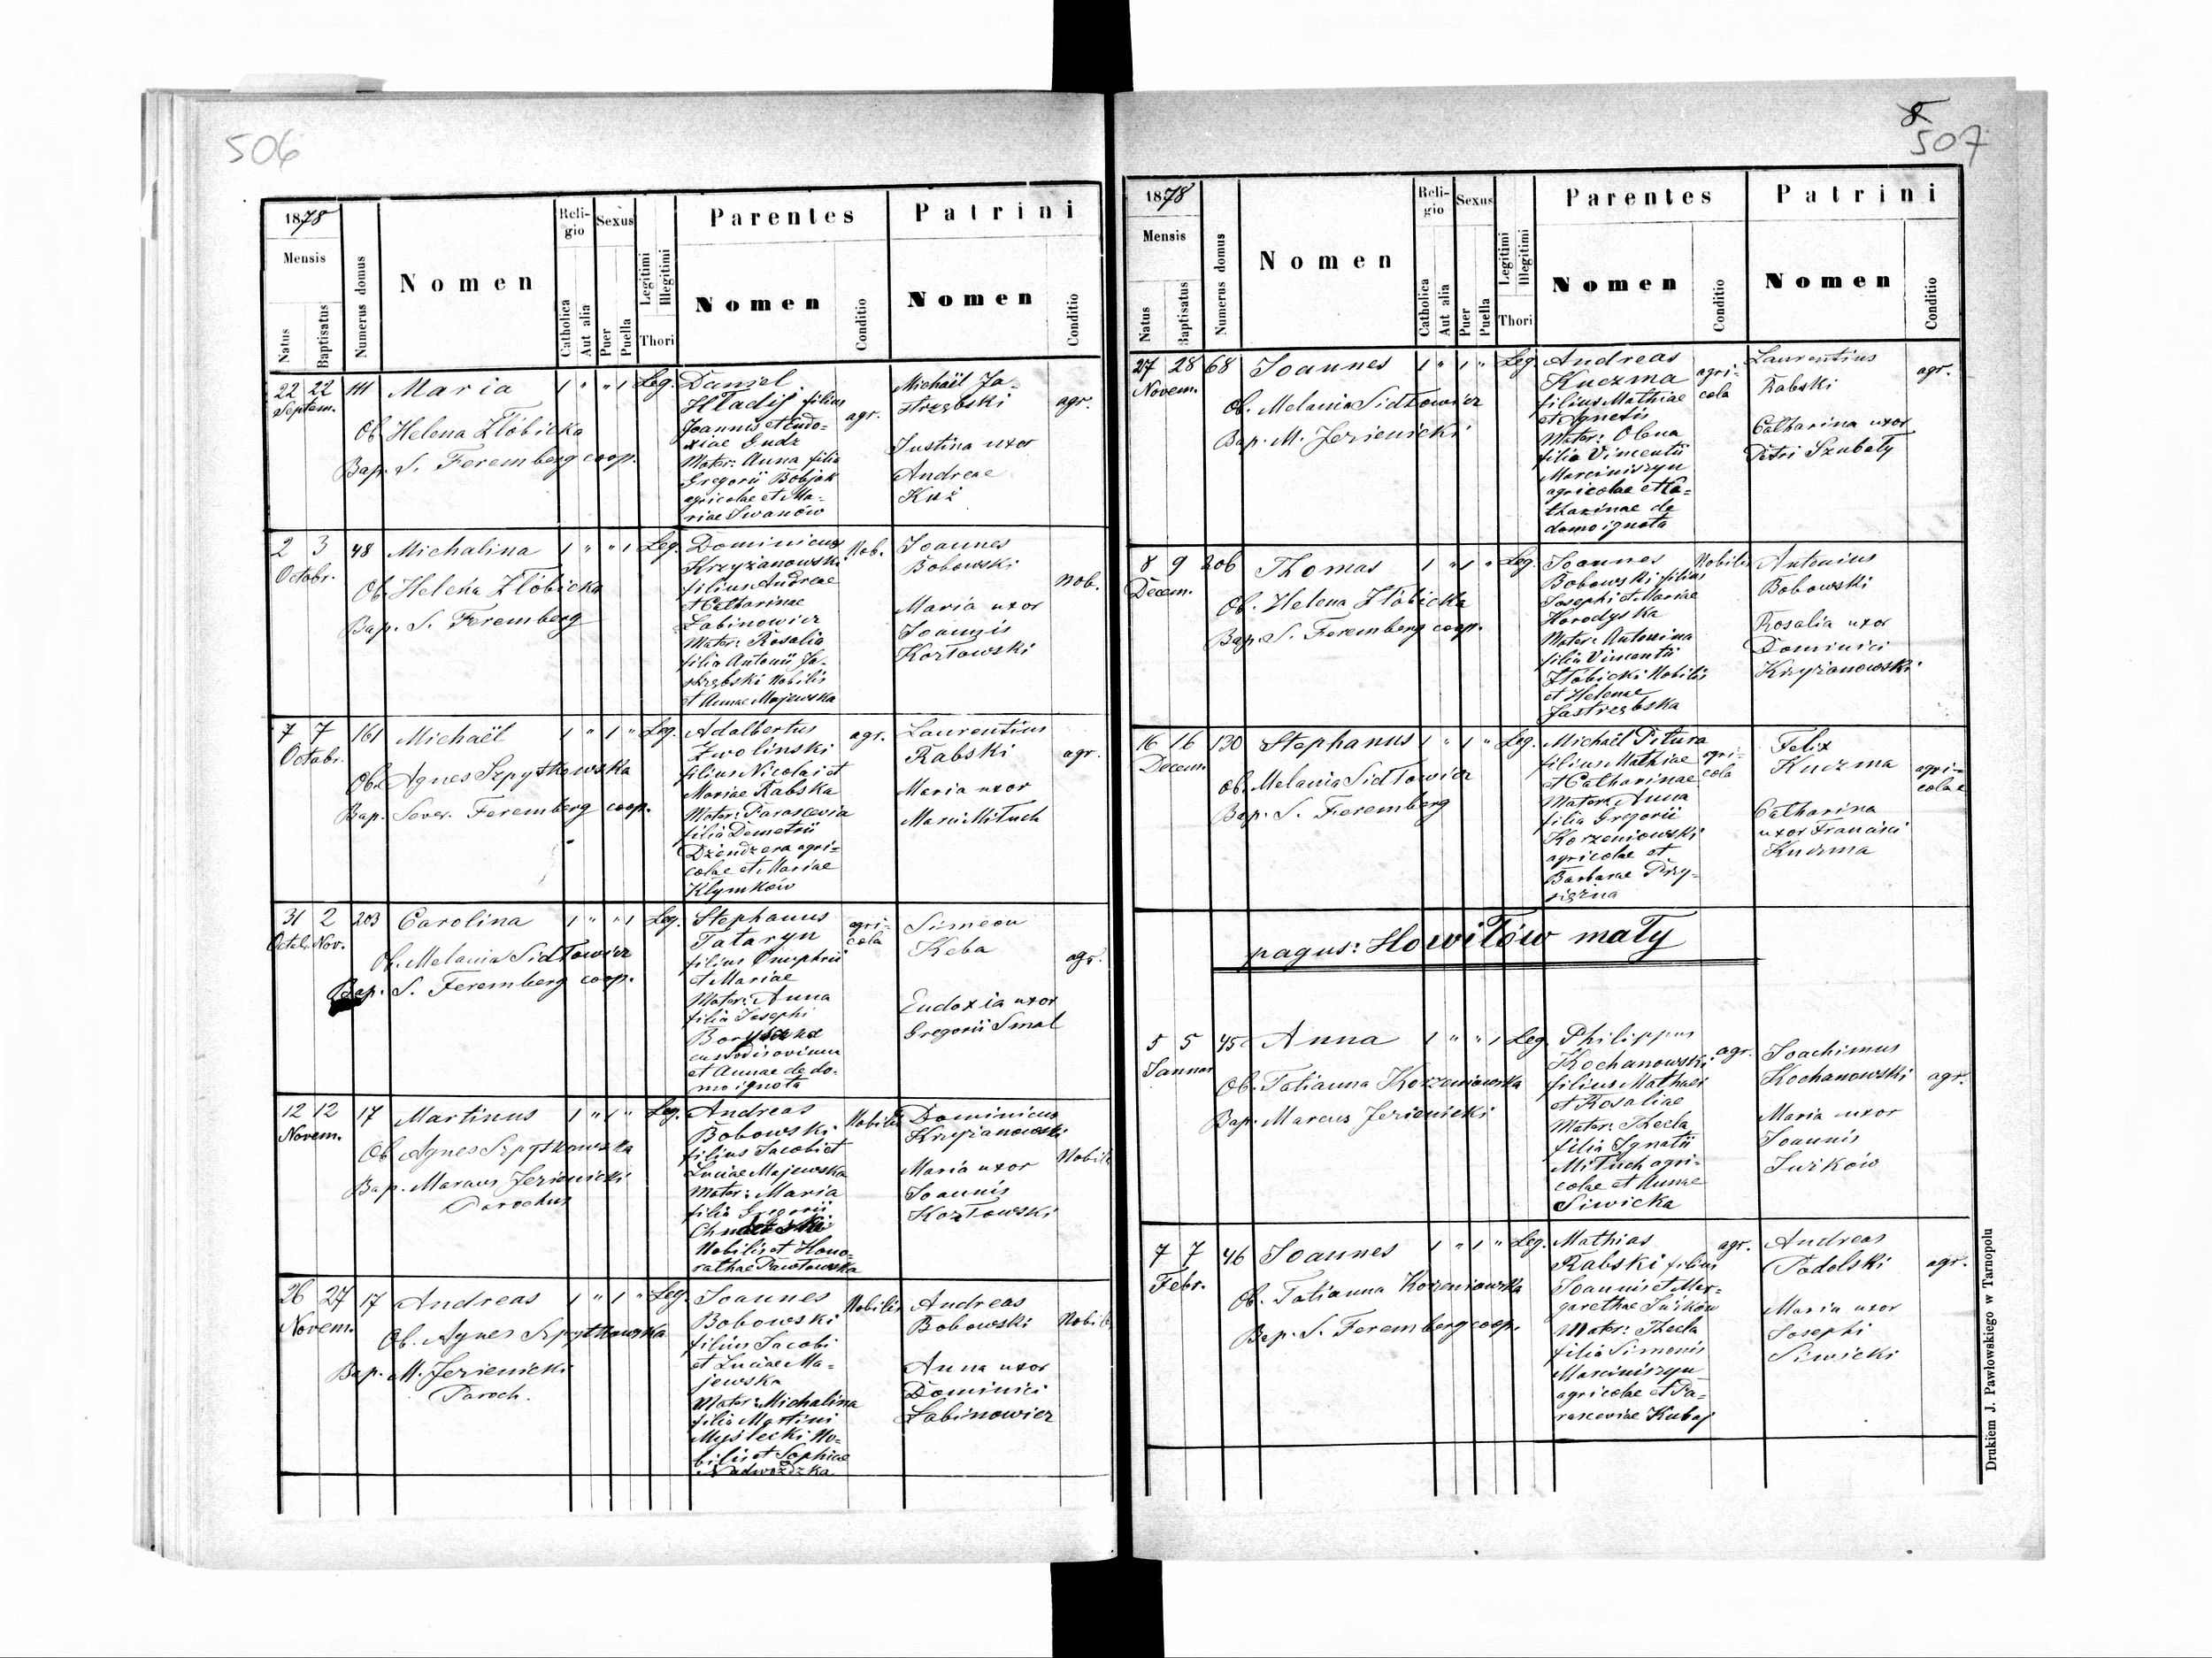 506
1878
Mensis
Natus
Baptisatus
Numerus domus
Nomen
Religio
Catholica
Aut alia
Sexus
Puer
Puella
Legitimi
Illegitimi
Thori
Parentes
Nomen
Conditio
Patrini
Nomen
Conditio
22 22 111 Maria 1 " " 1 Leg.
Septem.
Ob. Helena Żłobicka
Bap. S. Feremberg coop.
Daniel
Hładij filius
Joannis et Eudo=
xiae Gudz
Mater: Anna filia
Gregorii Bobjak
agricolae et Ma-
riae Iwanów
agr.
Michaël Ja-
strzębski
Justina uxor
Andreae
Kuź
agr.
2 3 48 Michalina 1 " " 1 Leg.
Octobr.
Ob. Helena Żłobicka
Bap. S. Feremberg
Dominicus
Krzyżanowski
filius Andreae
et Catharinae
Łabinowicz
Mater: Rosalia
filia Antonii Ja-
strzębski Nobilis
et Annae Majewska
Nob.
Joannes
Bobowski
Maria uxor
Joannis
Kozłowski
nob.
7 7 161 Michaël 1 " 1 " Leg.
Octobr.
Ob. Agnes Szpytkowska
Bap. Sever. Feremberg coop.
Adalbertus
Zwolinski
filius Nicolai et
Mariae Rabska
Mater: Parascevia
filia Demetrii
Dziendzera agri=
colae et Mariae
Klymków
agr.
Laurentius
Rabski
Maria uxor
Marci Mituch
agr.
31 2 203 Carolina 1 " " 1 Leg.
Octob. Nov.
Ob. Melania Sidłowicz
Bap. S. Feremberg coop.
Stephanus
Tataryn
filius Onuphrii
et Mariae
Mater: Anna
filia Josephi
et Annae de do-
mo ignota
agri=
cola
Simeon
Keba
Eudoxia uxor
Gregorii Smal
agr.
12 12 17 Martinus 1 " 1 " Leg.
Novem.
Ob. Agnes Szpytkowska
Bap. Marcus Jezienicki
Parochus
Andreas
Bobowski
filius Jacobi et
Luciae Majewska
Mater: Maria
filia Gregorii
Nobilis et Hono=
rathae Pawłowska
Nobilis
Dominicus
Krzyżanowski
Maria uxor
Joannis
Kozłowski
Nobil
26 27 17 Andreas 1 " 1 " Leg.
Novem.
Ob. Agnes Szpytkowska
Bap. M. Jezienicki
Paroch.
Joannes
Bobowski
filius Jacobi
et Luciae Ma=
jewska
Mater: Michalina
filia Martini
Myślecki No=
bilis et Sophiae
Nobilis
Andreas
Bobowski
Anna uxor
Dominici
Łabinowicz
Nobil
507
1878
Mensis
Natus
Baptisatus
Numerus domus
Nomen
Religio
Catholica
Aut alia
Sexus
Puer
Puella
Legitimi
Illegitimi
Thori
Parentes
Nomen
Conditio
Patrini
Nomen
Conditio
27 28 68 Joannes 1 " 1 " Leg.
Novem.
Ob. Melania Sidłowicz
Bap. M. Jezienicki
Andreas
Kuczma
filius Mathiae
et Agnetis
Mater: Olena
filia Vincentii
Marciniszyn
agricolae et Ca=
tharinae de
domo ignota
agri=
cola
Laurentius
Rabski
Catharina uxor
Petri Szubaty
agr.
8 9 206 Thomas 1 " 1 " Leg.
Decem.
Ob. Helena Żłobicka
Bap. S. Feremberg coop.
Joannes
Bobowski filius
Josephi et Mariae
Horodyska
Mater: Antonina
filia Vincentii
Żłobicki Nobilis
et Helenae
Jastrzębska
Nobilis
Antonius
Bobowski
Rosalia uxor
Dominici
Krzyżanowski
16 16 130 Stephanus 1 " 1 " Leg.
Decem.
Ob. Melania Sidłowicz
Bap. S. Feremberg
Michaël Pitura
filius Mathiae
et Catharinae
Mater: Anna
filia Gregorii
Korzeniowski
agricolae et
Barbarae Przy-
siężna
agri=
cola
Felix
Kuczma
Catharina
uxor Francisci
Kuczma
agri=
colae
pagus: Howiłów mały
5 5 45 Anna 1 " " 1 Leg.
Januar
Ob. Tatianna Korzeniowska
Bap. Marcus Jezienicki
Philippus
Kochanowski
filius Mathaei
et Rosaliae
Mater: Thecla
filia Ignatii
Mituch agri=
colae et Annae
Siwicka
agr.
Joachimus
Kochanowski
Maria uxor
Joannis
Juśków
agr.
7 7 46 Joannes 1 " 1 " Leg.
Febr.
Ob. Tatianna Korzeniowska
Bap. S. Feremberg coop.
Mathias
Rabski filius
Joannis et Mar=
garethae Juśków
Mater: Thecla
filia Simonis
Marciniszyn
agricolae et Pa=
rasceviae Kubaj
agr.
Andreas
Podolski
Maria uxor
Josephi
Siwicki
agr.
Drukiem J. Pawłowskiego w Tarnopolu